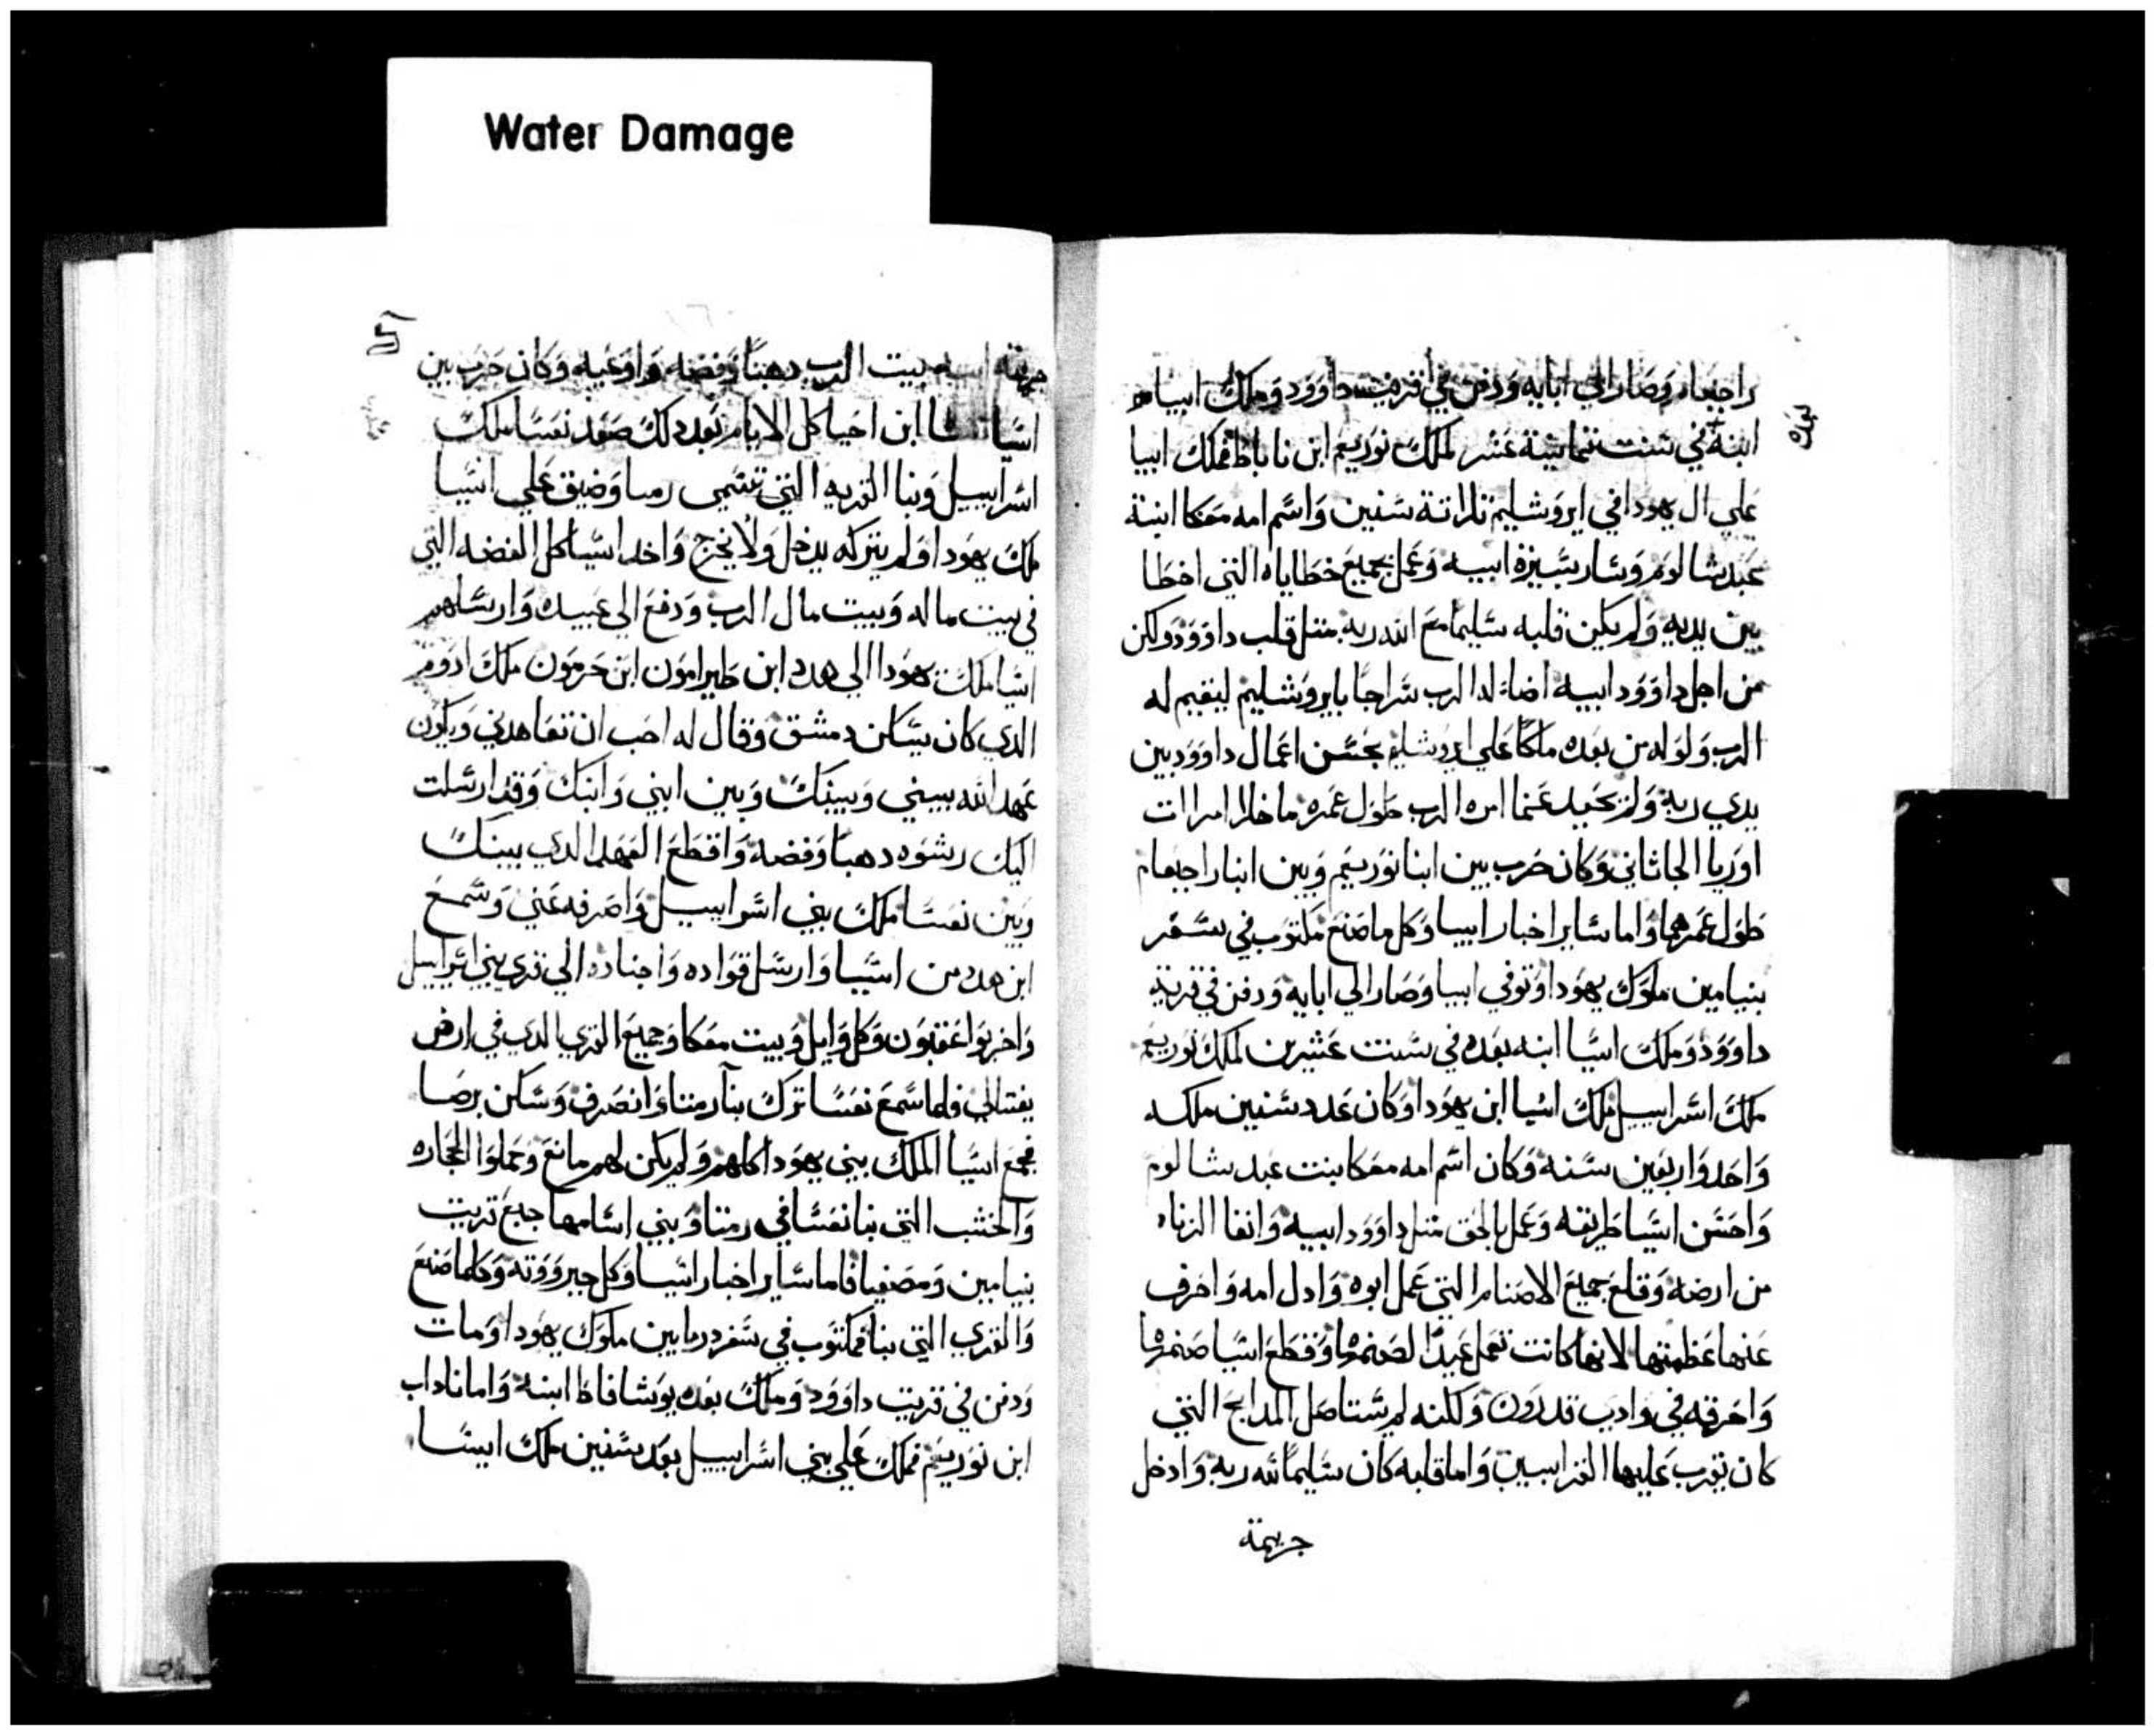 Water Damage
راجبعام وصار الي ابايه ودفن في قريت داوود وملك ابيام
ابنه في سنت ثمانية عشر لملك نوربعم ابن ناباط فملك ابيا
علي ال يهودا في ايروشليم تلاتة سنين واسم امه معكا ابنة
عبد شالوم وسار بسيرة ابيه وعمل بجميع خطاياه التي اخطا
بين يديه ولم يكن قلبه سليما مع الله ربه متل قلب داوود ولكن
من اجل داوود ابيه اضاء له الرب سراجا بايروشليم ليقيم له
الرب ولو له من بعده ملكا علي ايروشليم بحسن اعمال داوود بين
يدي ربه ولم يحيد عنما امره الرب طول عمره ما خلا امرات
اوريا الجاثاني وكان حرب بين ابنا نوربعم وبين ابنا راجبعام
طول عمرهما واما ساير اخبار ابيا وكل ما صنع مكتوب في سفر
بنيامين ملوك يهودا وتوفي ابيا وصار الي ابايه ودفن في قرية
داوود وملك اسيا ابنه بعده في سنت عشرين لملك نوربعم
ملك اسراييل ملك اسيا ابن يهودا وكان عدد سنين ملكه
واحد واربعين سنه وكان اسم امه معكا بنت عبد شالوم
واحسن اسيا طريقه وعمل بالحق متل داوود ابيه وانفا الزناه
من ارضه وقلع جميع الاصنام التي عمل ابوه وادل امه واحرف
عنها عظمتها لانها كانت تعمل عيدا لصنمها وقطع اسيا صنمها
واحرقه في وادي قدرون ولكنه لم يستاصل المدابح التي
كان يقرب عليها القرابين واما قلبه كان سليما لله ربه وادخل
جريمة
جريمة ابيه بيت الرب دهبا وفضه واوعيه وكان حرب بين
اسا ابن احيا كل الايام بعد دلك صعد نعسا ملك
اسراييل وبنا القريه التي تسمي رما وضيق علي اسيا
ملك يهودا ولم يتركه يدخل ولا يخرج واخد اسيا كل الفضه التي
في بيت ماله وبيت مال الرب ودفع الي عبيده وارسلهم
اسا ملك يهودا الي هدد ابن طيرامون ابن حرمون ملك ادوم
الدي كان يسكن دمشق وقال له احب ان تعاهدني ويكون
عهد الله بيني وبينك وبين ابني وابنك وقد ارسلت
اليك رشوه دهبا وفضه واقطع العهد الدي بينك
وبين نعسا ملك بني اسراييل واصرفه عني وسمع
ابن هدد من اسيا وارسل قواده واجناده الي قري بني اسراييل
واخربوا عنقيون وكل وابل وبيت معكا وجميع القري الدي في ارض
يفتالي فلما سمع نعسا ترك بنا رمتا وانصرف وسكن برصا
فجمع اسيا الملك بني يهودا كلهم ولم يكن لهم مانع وحملوا الحجاره
والخشب التي بنا نعسا في رمتا وبني اسا مها جبع قريت
بنيامين ومصفيا فاما ساير اخبار اسيا وكل جبرووته وكلما صنع
والقري التي بنا فمكتوب في سفر دبرا يمين ملوك يهودا ومات
ودفن في قريت داوود وملك بعده يوشافاط ابنه واما ناداب
ابن نوربعم فملك علي بني اسراييل بعد سنين ملك ابيسا